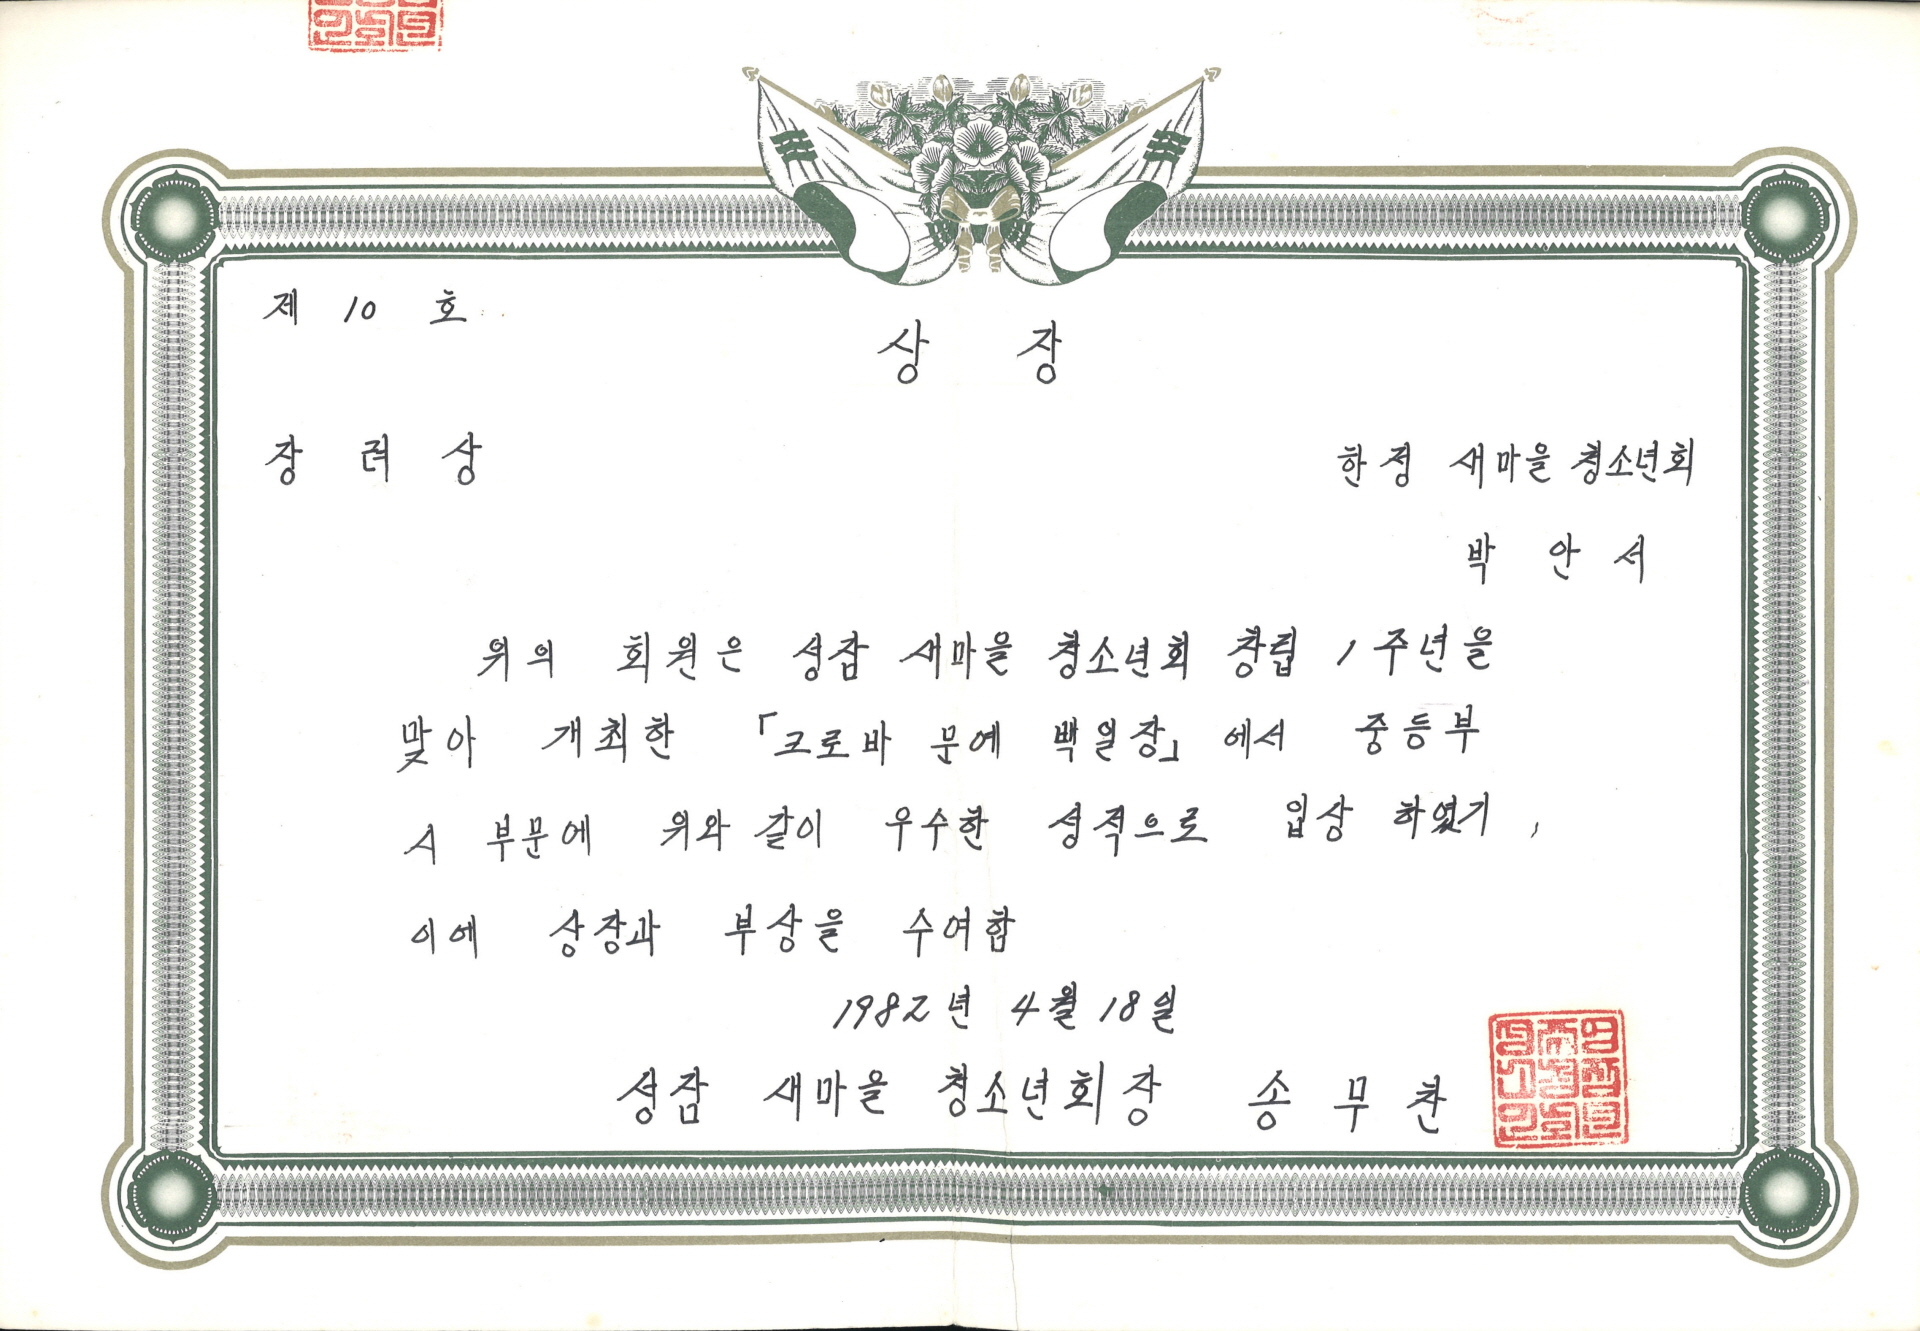 제 10 호
상 장
장 려 상
한정 새마을 청소년회
박 안 서
위의 회원은 성잠 새마을 청소년회 창립 1주년을
맞아 개최한 「크로바 문예 백일장」에서 중등부
시 부문에 위와 같이 우수한 성적으로 입상 하였기,
이에 상장과 부상을 수여함
1982년 4월 18일
성잠 새마을 청소년회장 송 무 찬